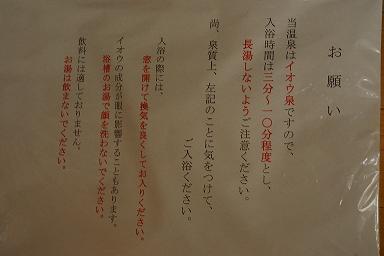 お願い
当温泉はイオウ泉ですので、
入浴時間は三分〜一〇分程度とし、
長湯しないようご注意ください。
尚、泉質上、左記のことに気をつけて、
ご入浴ください。
入浴の際には、
窓を開けて換気を良くしてお入りください。
イオウの成分が眼に影響することもあります。
浴槽のお湯で顔を洗わないでください。
飲料には適しておりません。
お湯は飲まないでください。